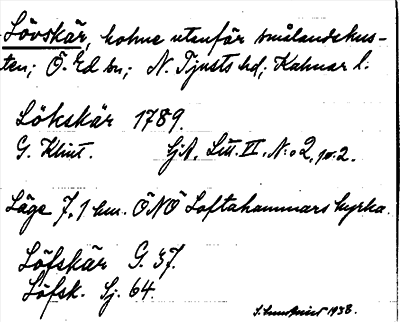 Lövskär, holme utanför smålandskus-
ten; Ö. Ed sn; N. Tjusts hd; Kalmar l.
Lökskär 1789.
G. Klint. SjA. Litt. II, N:o 2, p. 2.
Läge 7,1 km. ÖNÖ Loftahammars kyrka.
Löfskär G. 37.
Löfsk. Sj. 64.
1938.